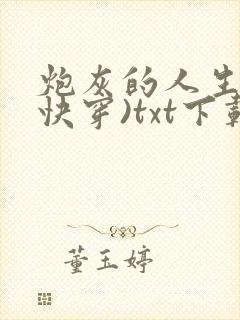 炮灰的人生
快穿)txt下载
董玉婷